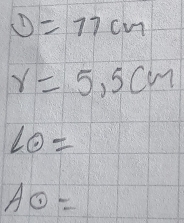 D = 11 cm
r = 5,5 cm
L⊙ =
A⊙ =